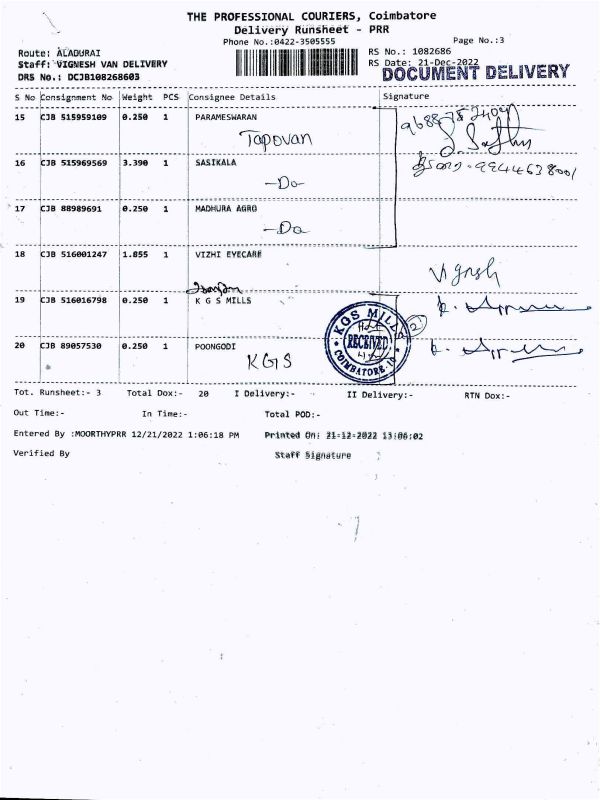 THE PROFESSIONAL COURIERS, Coimbatore
Delivery Runsheet - PRR
Phone No.:0422-3505555
Page No.:3
Route: ALADURAI
Staff: VIGNESH VAN DELIVERY
DRS No.: DCJB108268603
RS No.: 1082686
RS Date: 21-Dec-2022
DOCUMENT DELIVERY
S No Consignment No Weight PCS Consignee Details Signature
15 CJB 515959109 0.250 1 PARAMESWARAN
Tapovan
16 CJB 515969569 3.390 1 SASIKALA
-Do-
17 CJB 88989691 0.250 1 MADHURA AGRO
-Do
18 CJB 516001247 1.855 1 VIZHI EYECARE
Vignesh
19 CJB 516016798 0.250 1 K G S MILLS
KGS MILLS
RECEIVED
COIMBATORE
20 CJB 89057530 0.250 1 POONGODI
KGS
Tot. Runsheet:- 3 Total Dox:- 20 I Delivery:- II Delivery:- RTN Dox:-
Out Time:- In Time:- Total POD:-
Entered By :MOORTHYPRR 12/21/2022 1:06:18 PM Printed On: 21-12-2022 13:06:02
Verified By Staff Signature